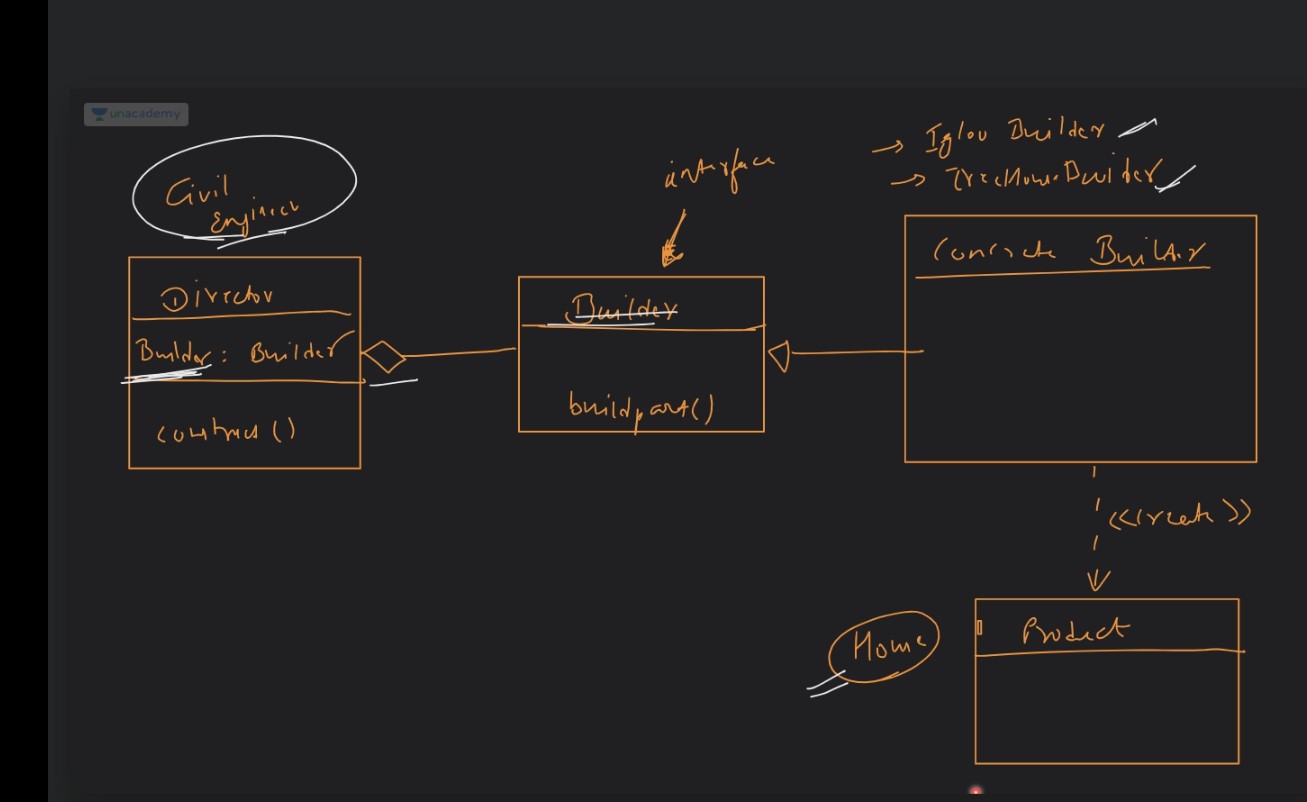 unacademy
Civil
Engineer
Director
Builder : Builder
construct ()
interface
Builder
buildpart()
→ Igloo Builder
→ TreeHouse Builder
Concrete Builder
<<create>>
Home
Product